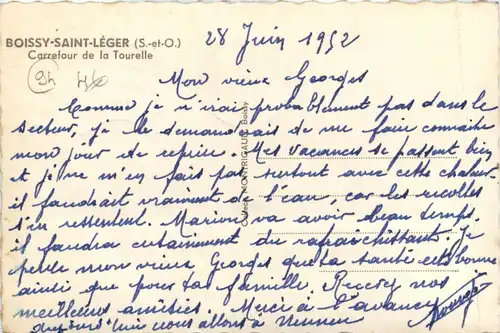 BOISSY-SAINT-LÉGER (S.-et-O.)
Carrefour de la Tourelle
28 Juin 1952
94
Mon vieux Georges
Comme je n'irai probablement pas dans le
secteur, je te demanderais de me faire connaître
mon jour de reprise. Mes vacances se passent bien
et je ne m'en fais pas, surtout avec cette chaleur
il faudrait vraiment de l'eau, car les récoltes
s'en ressentent. Marion va avoir beau temps.
il faudra certainement du rafraîchissant. Je
pense mon vieux Georges que ta santé est bonne
ainsi que pour ta famille. Reçois nos
meilleures amitiés. Merci à l'avance
nous allons à